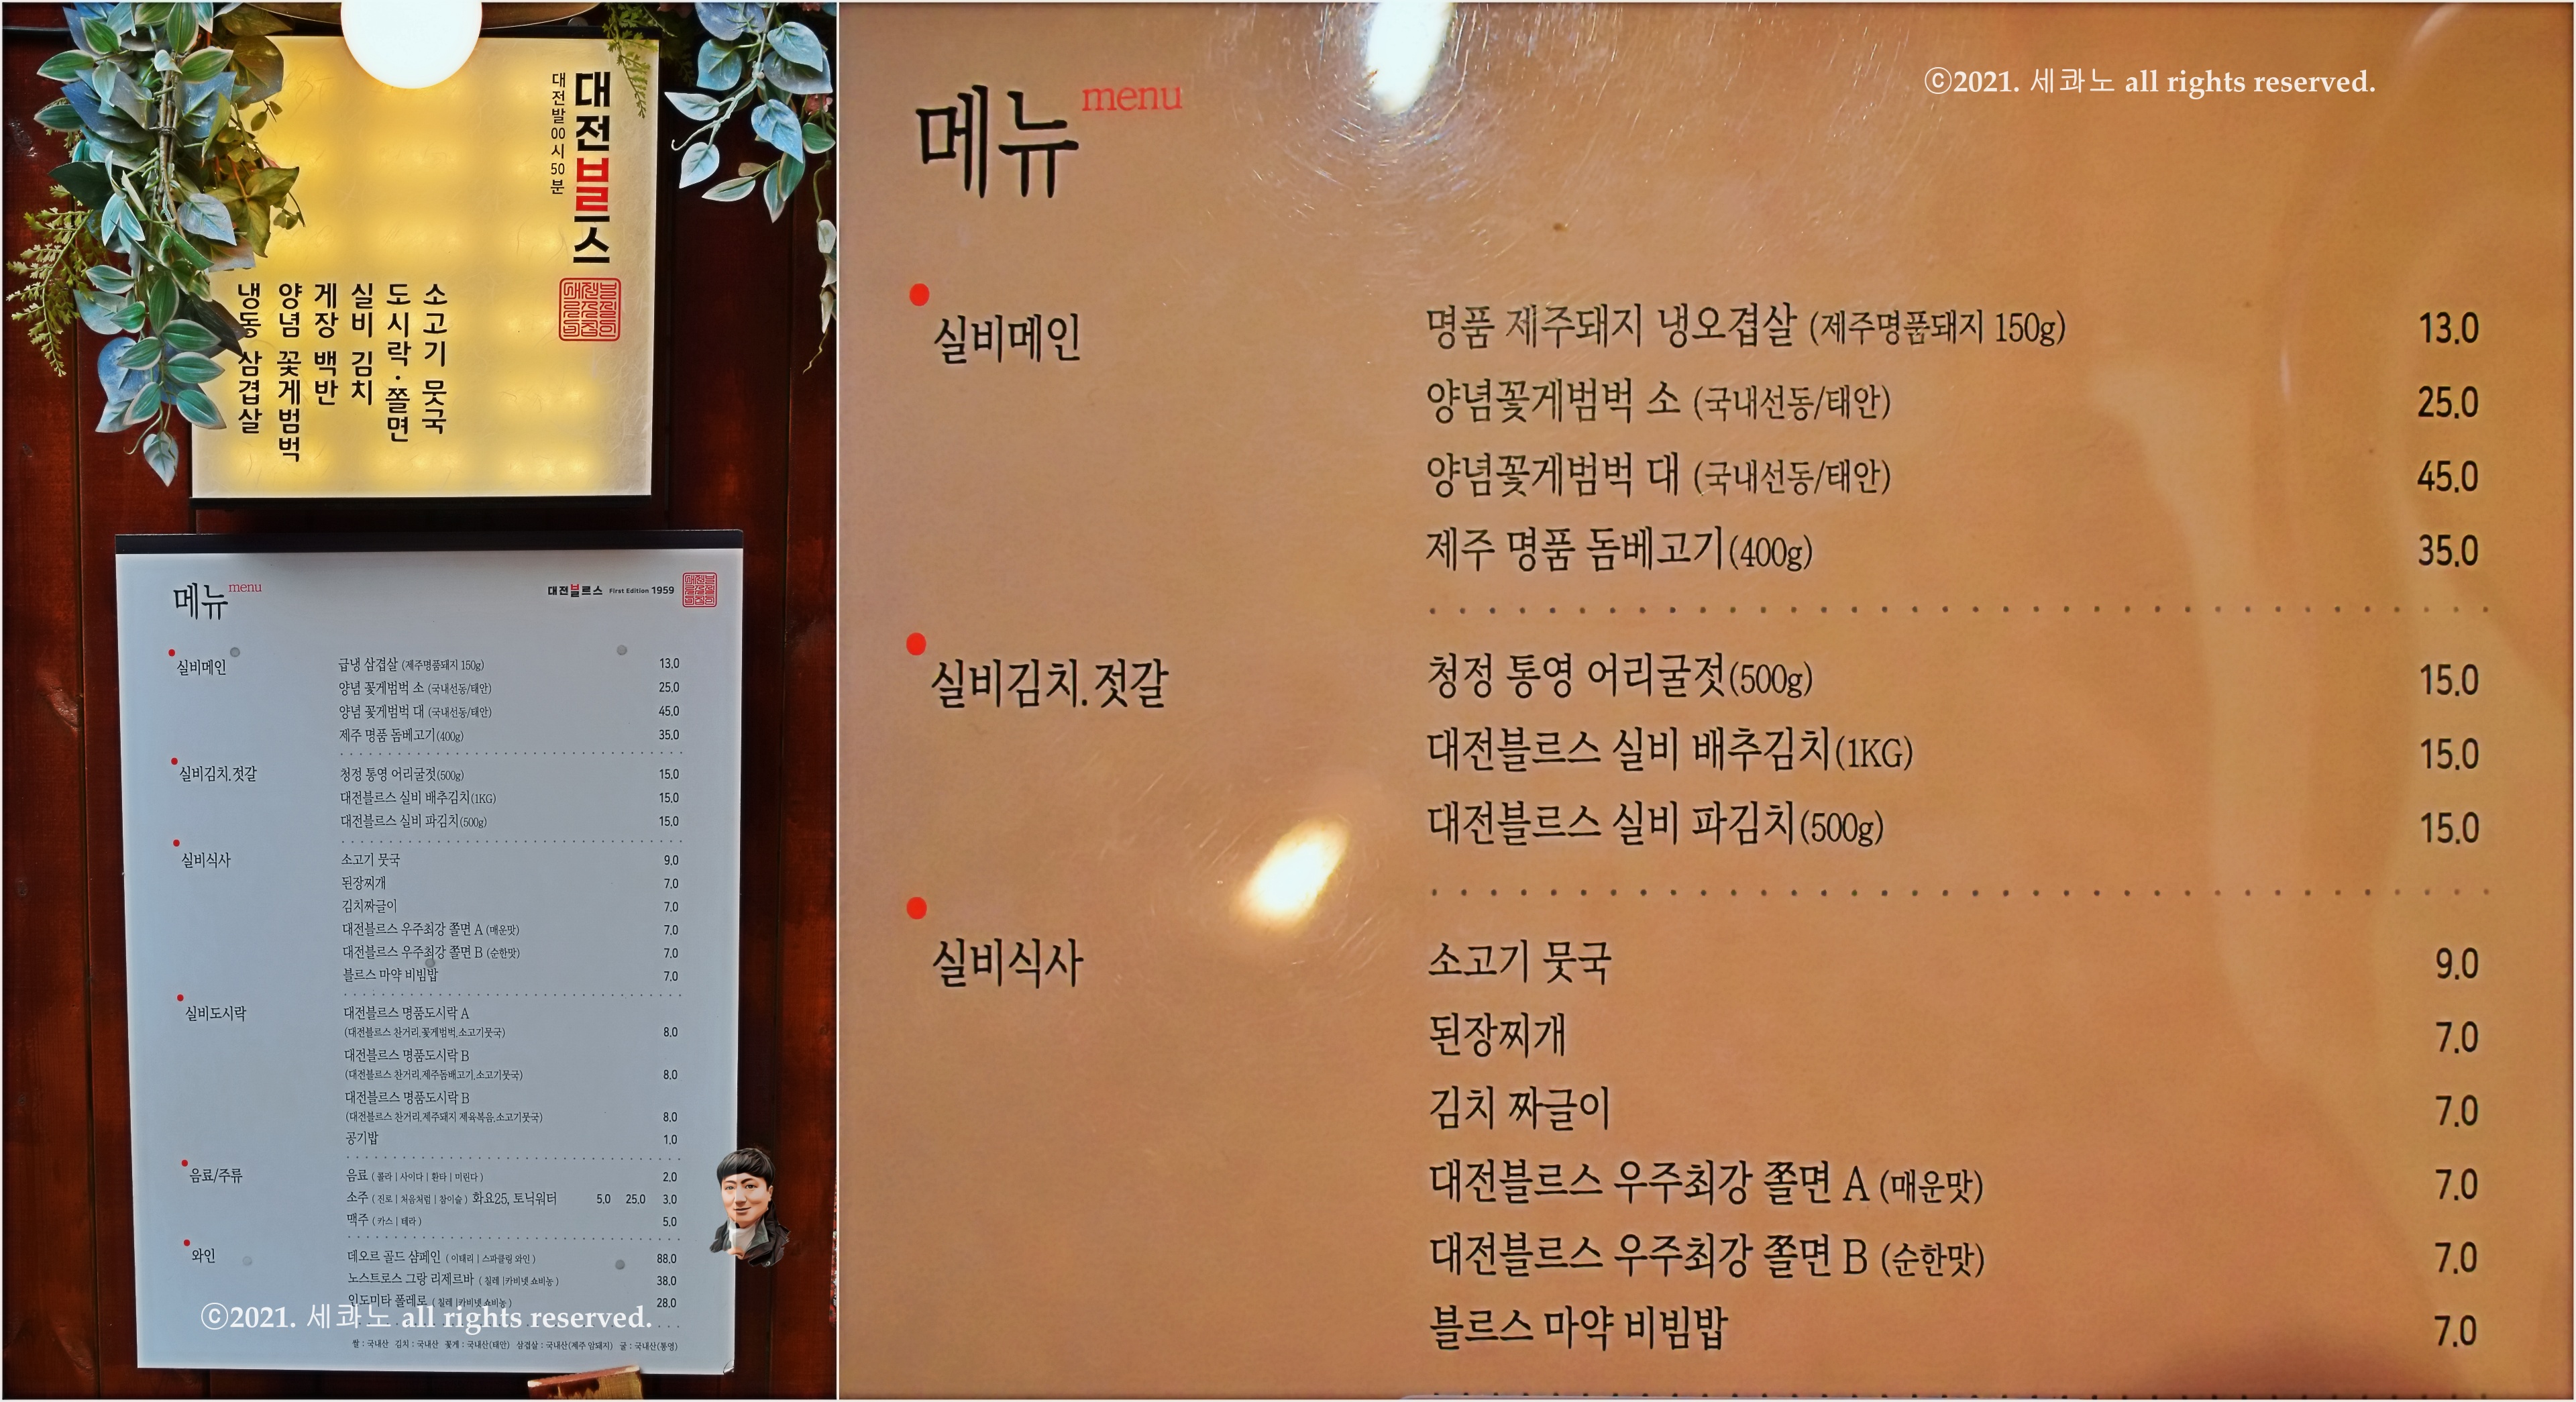 대전블르스
대전발00시50분
소고기 뭇국
도시락·쫄면
실비 김치
게장 백반
양념 꽃게범벅
냉동 삼겹살
메뉴 menu
대전블르스 First Edition 1959
실비메인
급냉 삼겹살 (제주명품돼지 150g) 13.0
양념 꽃게범벅 소 (국내선동/태안) 25.0
양념 꽃게범벅 대 (국내선동/태안) 45.0
제주 명품 돔베고기(400g) 35.0
실비김치.젓갈
청정 통영 어리굴젓(500g) 15.0
대전블르스 실비 배추김치(1KG) 15.0
대전블르스 실비 파김치(500g) 15.0
실비식사
소고기 뭇국 9.0
된장찌개 7.0
김치짜글이 7.0
대전블르스 우주최강 쫄면 A (매운맛) 7.0
대전블르스 우주최강 쫄면 B (순한맛) 7.0
블르스 마약 비빔밥 7.0
실비도시락
대전블르스 명품도시락 A
(대전블르스 찬거리,꽃게범벅,소고기뭇국) 8.0
대전블르스 명품도시락 B
(대전블르스 찬거리,제주돔배고기,소고기뭇국) 8.0
대전블르스 명품도시락 B
(대전블르스 찬거리,제주돼지 제육볶음,소고기뭇국) 8.0
공기밥 1.0
음료/주류
음료 ( 콜라 | 사이다 | 환타 | 미린다 ) 2.0
소주 ( 진로 | 처음처럼 | 참이슬 ) 화요25, 토닉워터 5.0 25.0 3.0
맥주 ( 카스 | 테라 ) 5.0
와인
데오르 골드 샴페인 ( 이태리 | 스파클링 와인 ) 88.0
노스트로스 그랑 리제르바 ( 칠레 |카비넷 쇼비농 ) 38.0
인도미타 폴레로 ( 칠레 |카비넷 쇼비농 ) 28.0
ⓒ2021. 세콰노 all rights reserved.
쌀 : 국내산 김치 : 국내산 꽃게 : 국내산(태안) 삼겹살 : 국내산(제주 암돼지) 굴 : 국내산(통영)
메뉴 menu
ⓒ2021. 세콰노 all rights reserved.
실비메인
명품 제주돼지 냉오겹살 (제주명품돼지 150g) 13.0
양념꽃게범벅 소 (국내선동/태안) 25.0
양념꽃게범벅 대 (국내선동/태안) 45.0
제주 명품 돔베고기(400g) 35.0
실비김치.젓갈
청정 통영 어리굴젓(500g) 15.0
대전블르스 실비 배추김치(1KG) 15.0
대전블르스 실비 파김치(500g) 15.0
실비식사
소고기 뭇국 9.0
된장찌개 7.0
김치 짜글이 7.0
대전블르스 우주최강 쫄면 A (매운맛) 7.0
대전블르스 우주최강 쫄면 B (순한맛) 7.0
블르스 마약 비빔밥 7.0